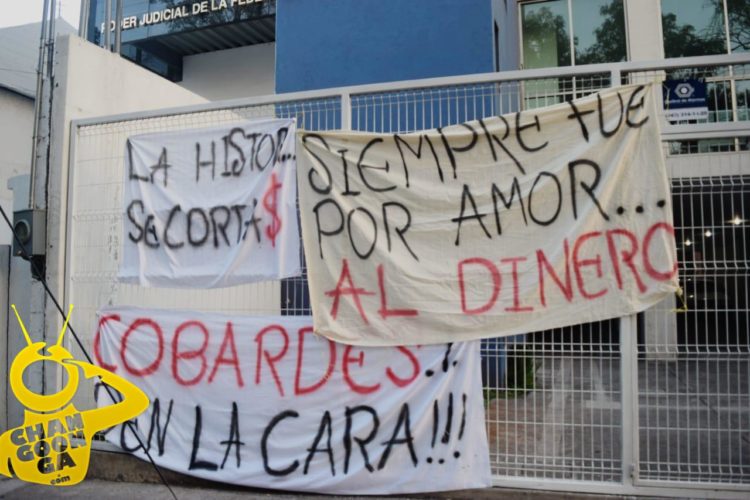 PODER JUDICIAL DE LA FEDE
LA HISTOR...
SE CORTA$
SIEMPRE FUE
POR AMOR...
AL DINERO
COBARDES.!
CON LA CARA!!!
CHAN
GOON
GA
.com